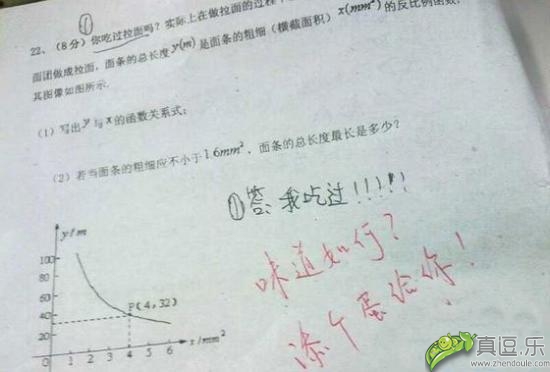 ①
22、（8分）你吃过拉面吗？实际上在做拉面的过程
面团做成拉面，面条的总长度y(m)是面条的粗细（横截面积）x(mm²)的反比例函数，
其图像如图所示．
（1）写出y与x的函数关系式；
（2）若当面条的粗细应不小于1.6mm²，面条的总长度最长是多少？
①答：我吃过！！！！！
味道如何？
添个蛋给你！
y/m
100
80
60
40
20
0
P(4,32)
1 2 3 4 5 6 x/mm²
真逗.乐
www.zhendoule.com